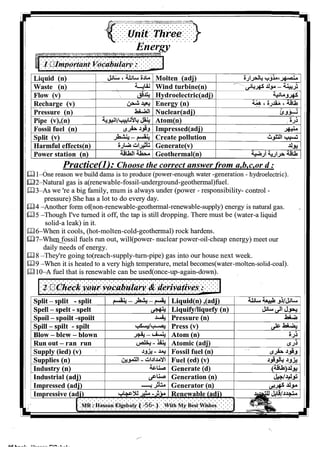 Unit Three
Energy
1 Important Vocabulary :
Liquid (n) مادة سائلة ، سائل Molten (adj) منصهر-مذوب بالحرارة
Waste (n) نفاية Wind turbine(n) تربينة – مولد كهربائى
Flow (v) يتدفق Hydroelectric(adj) كهرومائية
Recharge (v) يعيد شحن Energy (n) طاقة ، مقدرة ، همّة
Pressure (n) الضغط Nuclear(adj) نووى
Pipe (v),(n) ينقل بالأنابيب/أنبوبة Atom(n) ذرة
Fossil fuel (n) وقود حفرى Impressed(adj) منبهر
Split (v) ينقسم – ينشطر Create pollution تسبب التلوث
Harmful effects(n) تأثيرات ضارة Generate(v) يولد
Power station (n) محطة الطاقة Geothermal(n) طاقة حرارية أرضية
Practice(1): Choose the correct answer from a,b,c,or d :
1–One reason we build dams is to produce (power-enough water -generation - hydroelectric).
2–Natural gas is a(renewable-fossil-underground-geothermal)fuel.
3–As we 're a big family, mum is always under (power - responsibility- control -
pressure) She has a lot to do every day.
4 –Another form of(non-renewable-geothermal-renewable-supply) energy is natural gas.
5 –Though I've turned it off, the tap is still dropping. There must be (water-a liquid
solid-a leak) in it.
6–When it cools, (hot-molten-cold-geothermal) rock hardens.
7–When fossil fuels run out, will(power- nuclear power-oil-cheap energy) meet our
daily needs of energy.
8 –They're going to(reach-supply-turn-pipe) gas into our house next week.
9 –When it is heated to a very high temperature, metal becomes(water-molten-solid-coal).
10–A fuel that is renewable can be used(once-up-again-down).
2 Check your vocabulary & derivatives :
Split – split - split يقسم – يشطر – ينقسم Liquid(n) ,(adj) سائل/ذو طبيعة سائلة
Spell – spelt - spelt يتهجى Liquify/liquefy (n) يحول الى سائل
Spoil – spoilt -spoilt يفسد Pressure (n) ضغط
Spill – spilt - spilt يصب/يسكب Press (v) يضغط على
Blow – blew – blown ينسف – يفجر Atom (n) ذرة
Run out – ran run ينفذ - يخلص Atomic (adj) ذرى
Supply (ied) (v) يمد - يزود Fossil fuel (n) وقود حفرى
Supplies (n) الامدادات - التموين Fuel (ed) (v) يزود بالوقود
Industry (n) صناعة Generate (d) يولد(طاقة)
Industrial (adj) صناعى Generation (n) توليد/جيل
Impressed (adj) متأثر بـــــ Generator (n) مولد كهربى
Impressive (adj) مؤثر- مثير للإعجاب Renewable (adj) متجدد/قابل للتجديد
MR : Hassan Elgebaly ( -56- ) With My Best Wishes